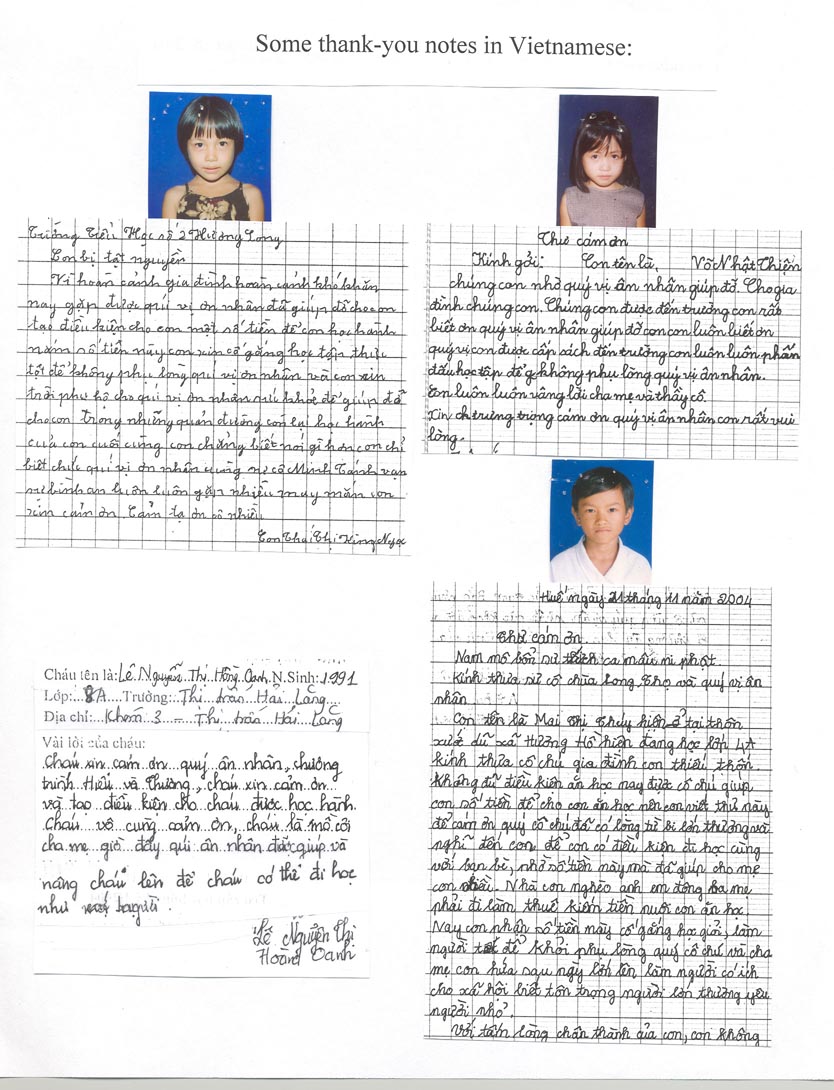 Some thank-you notes in Vietnamese:
Trường Tiểu Học số 2 Hương Long
Con bị tật nguyền
Vì hoàn cảnh gia đình hoàn cảnh khó khăn
nay gặp được quí vị ơn nhân đã giúp đỡ cho con
tạo điều kiện cho con một số tiền để con học hành
nắm số tiền này con xin cố gắng học tập thực
tốt để không phục lòng quí vị ơn nhân và con xin
trời phụ hộ cho quí vị ơn nhân sức khỏe để giúp đỡ
cho con trong những quản đường còn lại học hành
của con cuối cùng con chẳng biết nói gì hơn con chỉ
biết chúc quí vị ơn nhân cùng sư cô Minh Tánh vạn
sự bình an luôn luôn gặp nhiều may mắn con
xin cảm ơn. Cảm tạ ơn nhiều
Con Thái Thị Ngọc
Thư cám ơn
Kính gởi: Con tên là, Võ Nhật Thiện
chúng con nhờ quý vị ân nhân giúp đỡ. Cho gia
đình chúng con. Chúng con được đến trường con rất
biết ơn quý vị ân nhân giúp đỡ con con luôn biết ơn
quý vị con được cấp sách đến trường con luôn luôn phấn
đấu học tập để không phụ lòng quý vị ân nhân.
Con luôn luôn vâng lời cha mẹ và thầy cô.
Xin trưng trọng cám ơn quý vị ân nhân con rất vui
lòng.
Huế ngày 21 tháng 11 năm 2004
Thư cám ơn
Nam mô bổn sư thích ca mâu ni phật.
Kính thưa sư cô chùa Long Thọ và quý vị ân
nhân
Con tên là Mai Thị Thúy hiền ở tại thôn
xước dũ xã Hương Hồ hiện đang học lớp 4A
kính thưa cô chú gia đình con thiếu thốn
Không đủ điều kiện ăn học nay được cô chú giúp
con số tiền để cho con ăn học nên con viết thư này
để cám ơn quý cô chú đã có lòng từ bi lớn thương và
nghĩ đến con để con có điều kiện đi học cùng
với bạn bè, nhờ số tiền này mà đã giúp cho mẹ
con nhiều. Nhà con nghèo anh em đông ba mẹ
phải đi làm thuê kiếm tiền nuôi con ăn học.
Nay con nhận số tiền này cố gắng học giỏi, làm
người tốt để khỏi phụ lòng quý cô chú và cha
mẹ con hứa sau ngày lớn lên làm người có ích
cho xã hội biết tôn trọng người lớn thương yêu
người nhỏ.
Với tấm lòng chân thành của con, con không
Cháu tên là: Lê Nguyễn Thị Hồng Oanh. N.Sinh: 1991
Lớp: 8A Trường: Thị trấn Hải Lăng
Địa chỉ: Khóm 3 - Thị trấn Hải Lăng
Vài lời của cháu:
Cháu xin cảm ơn quý ân nhân, chương
trình Hiểu và Thương, cháu xin cảm ơn
và tạo điều kiện cho cháu được học hành.
Cháu vô cùng cảm ơn, cháu là mồ côi
cha mẹ giờ đây quí ân nhân đã giúp và
nâng cháu lên để cháu có thể đi học
như bao người.
Lê Nguyễn Thị
Hoàng Oanh